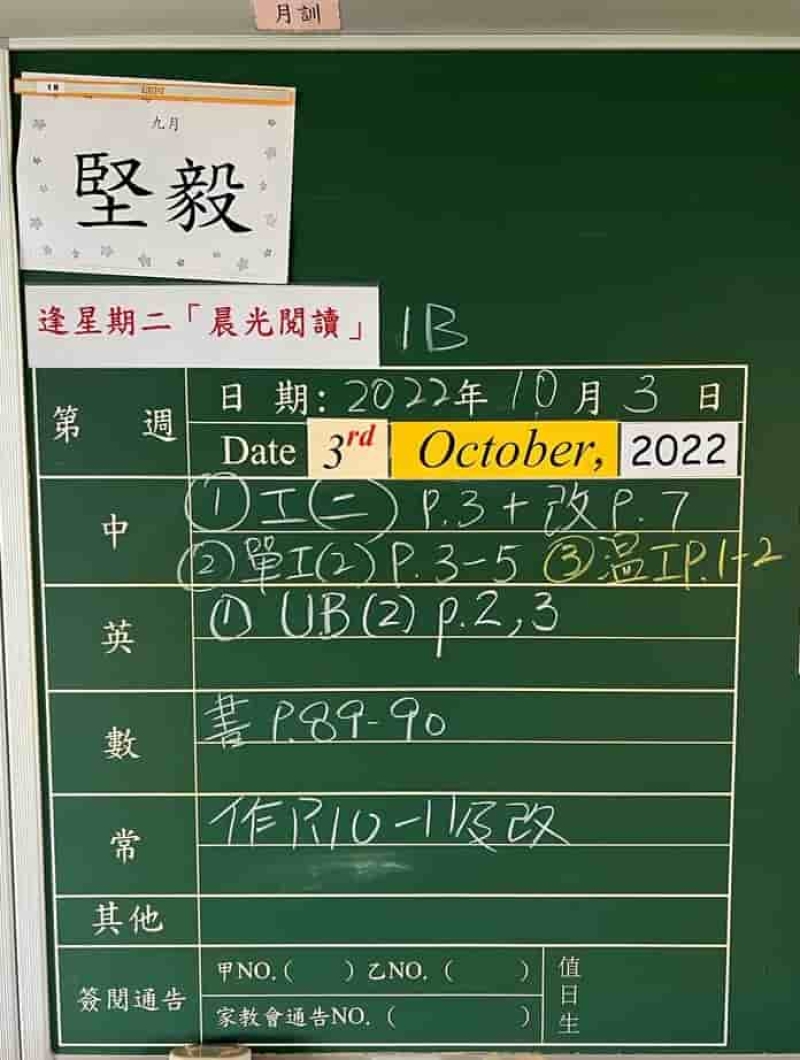 月訓
九月
堅毅
逢星期二「晨光閱讀」
1B
第 週
日 期: 2022年 10月 3 日
Date 3rd October, 2022
中
① 工(二) P.3 + 改 P.7
② 單工(2) P.3-5 ③ 温工P.1-2
英
① UB(2) p.2,3
數
書 P.89-90
常
作P.10-11及改
其他
簽閱通告
甲NO.( ) 乙NO. ( )
家教會通告NO. ( )
值日生